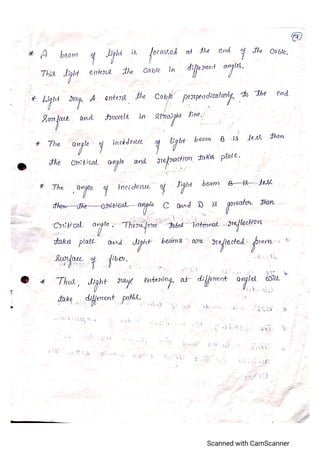 * A beam of light is focused at the end of the Cable.
This light enters the Cable in different angles.
* Light ray, A enters the Cable perpendicularly to the end
Surface and travels in straight line.
* The angle of incidence of light beam B is less than
the critical angle and refraction takes place.
* The angle of incidence of light beam B is less
than the critical angle C and D is greater than
Critical angle. Therefore total internal reflection
takes place and light beams are reflected from
surface of fiber.
* Thus, light rays entering at different angles will
take different paths.
Scanned with CamScanner